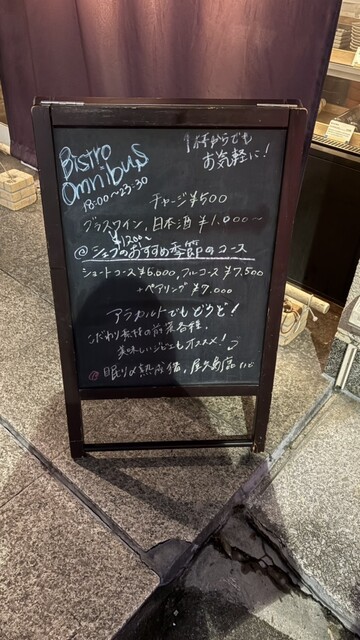 Bistro
Omnibus
18:00〜23:30
1杯からでも
お気軽に!
チャージ¥500
グラスワイン、日本酒 ¥1,000〜
¥1200〜
@シェフのおすすめ季節のコース
ショートコース¥6,000、フルコース ¥7,500
+ペアリング¥7,000
アラカルトでもどうぞ!
こだわり素材の前菜各種、
美味しいジビエもオススメ!
@眠り〆熟成猪、屋久島鹿 etc